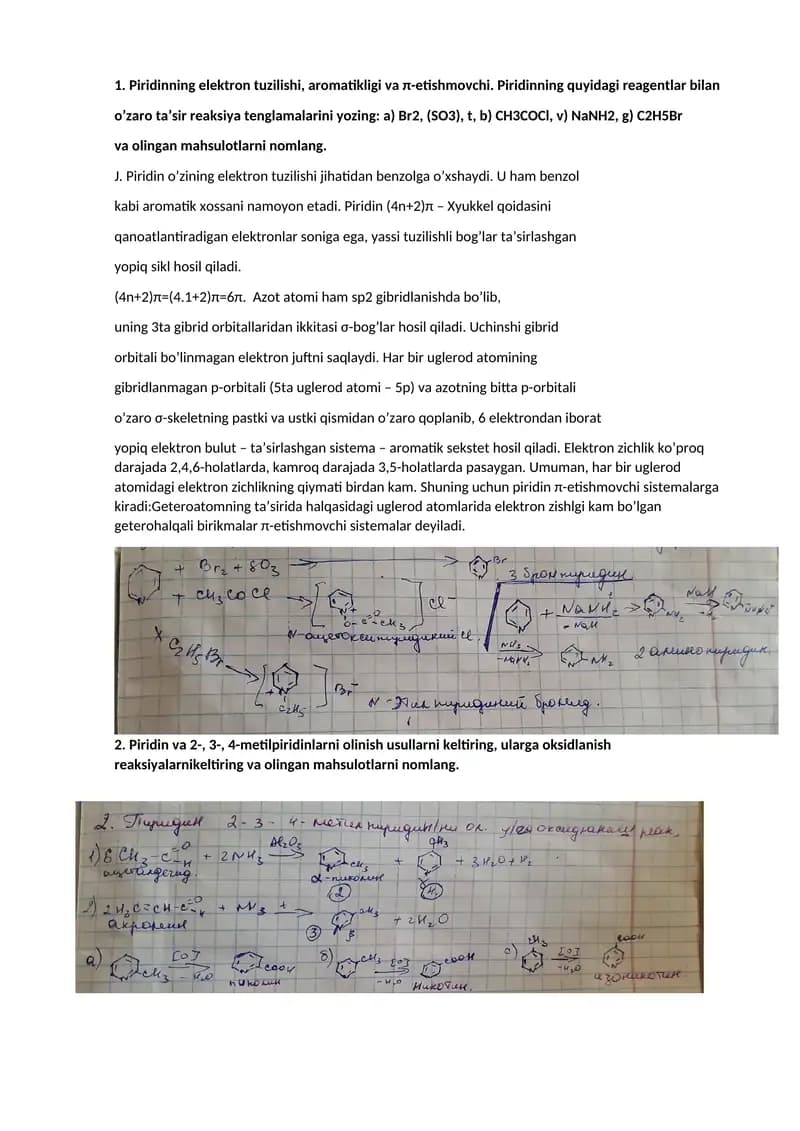 1. Piridinning elektron tuzilishi, aromatikligi va π-etishmovchi. Piridinning quyidagi reagentlar bilan
o’zaro ta’sir reaksiya tenglamalarini yozing: a) Br2, (SO3), t, b) CH3COCl, v) NaNH2, g) C2H5Br
va olingan mahsulotlarni nomlang.
J. Piridin o’zining elektron tuzilishi jihatidan benzolga o’xshaydi. U ham benzol
kabi aromatik xossani namoyon etadi. Piridin (4n+2)π – Xyukkel qoidasini
qanoatlantiradigan elektronlar soniga ega, yassi tuzilishli bog’lar ta’sirlashgan
yopiq sikl hosil qiladi.
(4n+2)π=(4.1+2)π=6π. Azot atomi ham sp2 gibridlanishda bo’lib,
uning 3ta gibrid orbitallaridan ikkitasi σ-bog’lar hosil qiladi. Uchinshi gibrid
orbitali bo’linmagan elektron juftni saqlaydi. Har bir uglerod atomining
gibridlanmagan p-orbitali (5ta uglerod atomi – 5p) va azotning bitta p-orbitali
o’zaro σ-skeletning pastki va ustki qismidan o’zaro qoplanib, 6 elektrondan iborat
yopiq elektron bulut – ta’sirlashgan sistema – aromatik sekstet hosil qiladi. Elektron zichlik ko’proq
darajada 2,4,6-holatlarda, kamroq darajada 3,5-holatlarda pasaygan. Umuman, har bir uglerod
atomidagi elektron zichlikning qiymati birdan kam. Shuning uchun piridin π-etishmovchi sistemalarga
kiradi:Geteroatomning ta’sirida halqasidagi uglerod atomlarida elektron zishlgi kam bo’lgan
geterohalqali birikmalar π-etishmovchi sistemalar deyiladi.
+ Br₂ + SO₃ Br
3 бромпиридин
+ CH₃COCl N+ Cl⁻
O-C=O-CH₃
+ NaNH₂ - NaH NH₂ NaH
C₂H₅Br NH₃ NH₂ 2 аминопиридин
N+ C₂H₅ Br⁻ N - Этил пиридиний бромид.
2. Piridin va 2-, 3-, 4-metilpiridinlarni olinish usullarni keltiring, ularga oksidlanish
reaksiyalarnikeltiring va olingan mahsulotlarni nomlang.
2. Пиридин 2 - 3 - 4 - метил пиридин
1) 6 CH₃-C=O H + 2NH₃ Al₂O₃ CH₃ + CH₃ + 3H₂O + H₂
ацетальдегид. α-пиколин
2) 2H₂C=CH-C=O H + NH₃ CH₃ + 2H₂O
акролеин 3 β
а) CH₃ [O] - H₂O COOH пиколин б) CH₃ [O] -H₂O COOH никотин. с) CH₃ [O] -H₂O COOH изоникотин